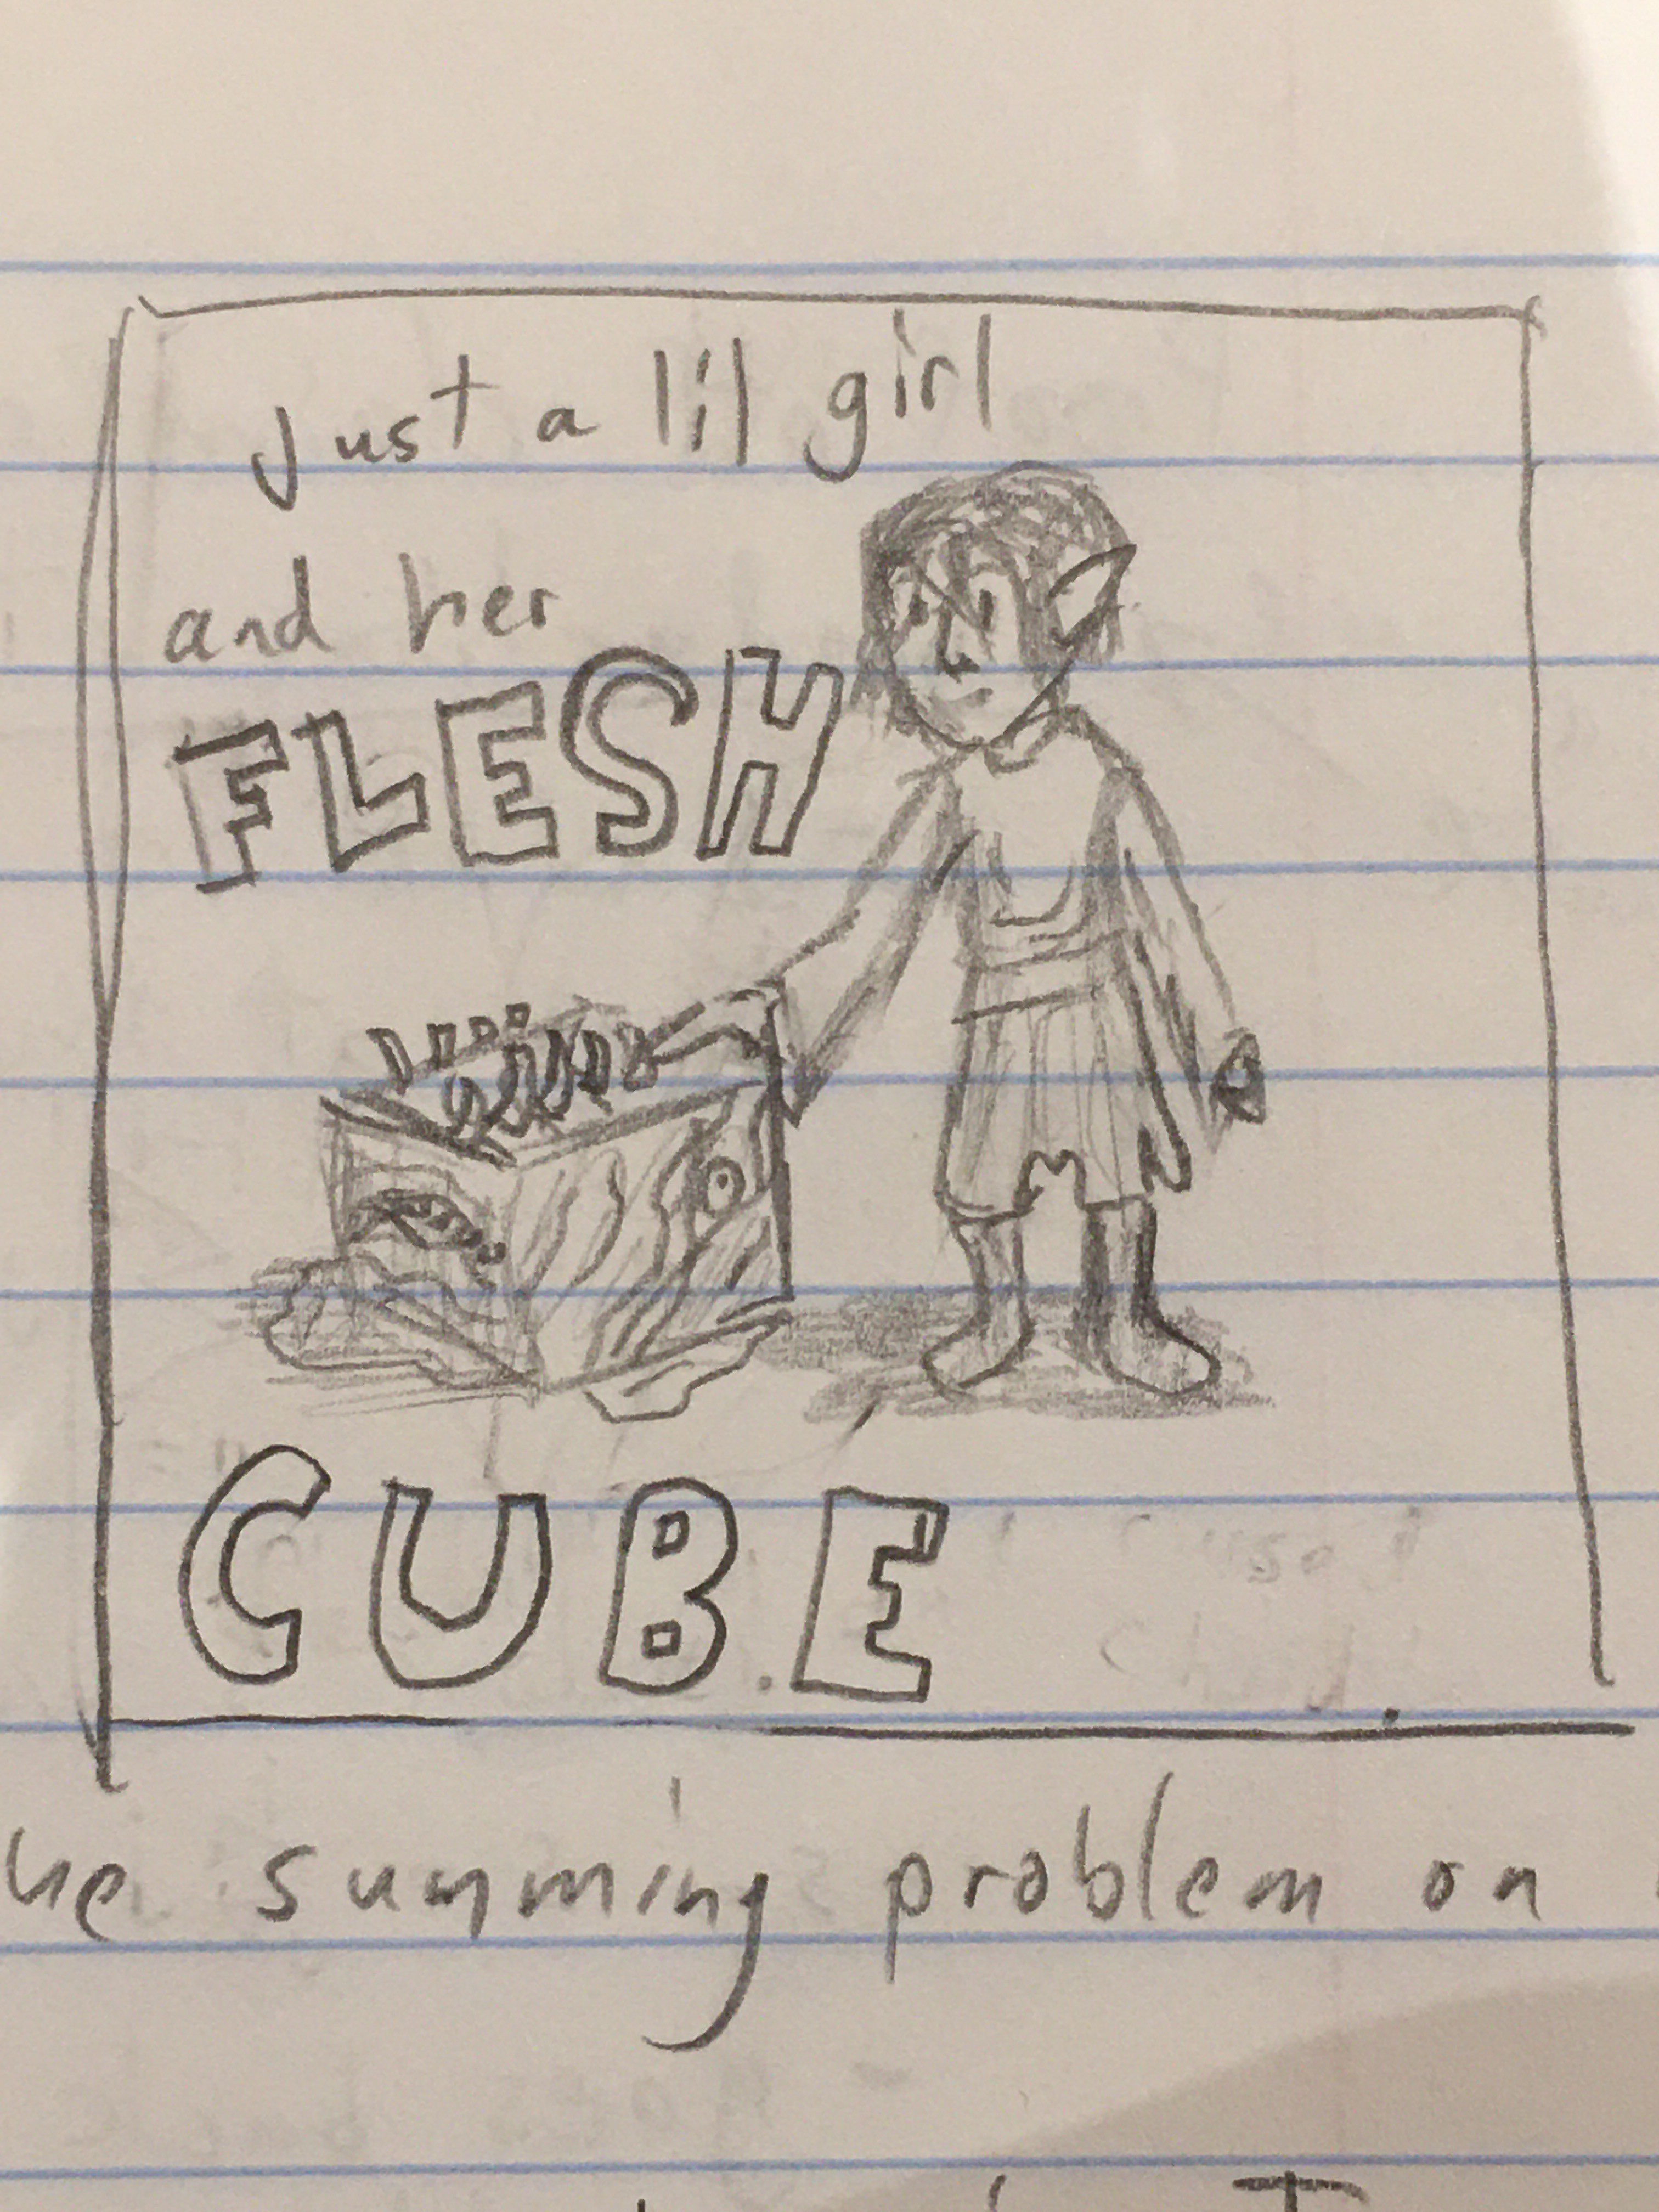 Just a lil girl
and her
FLESH
CUBE
summing problem on